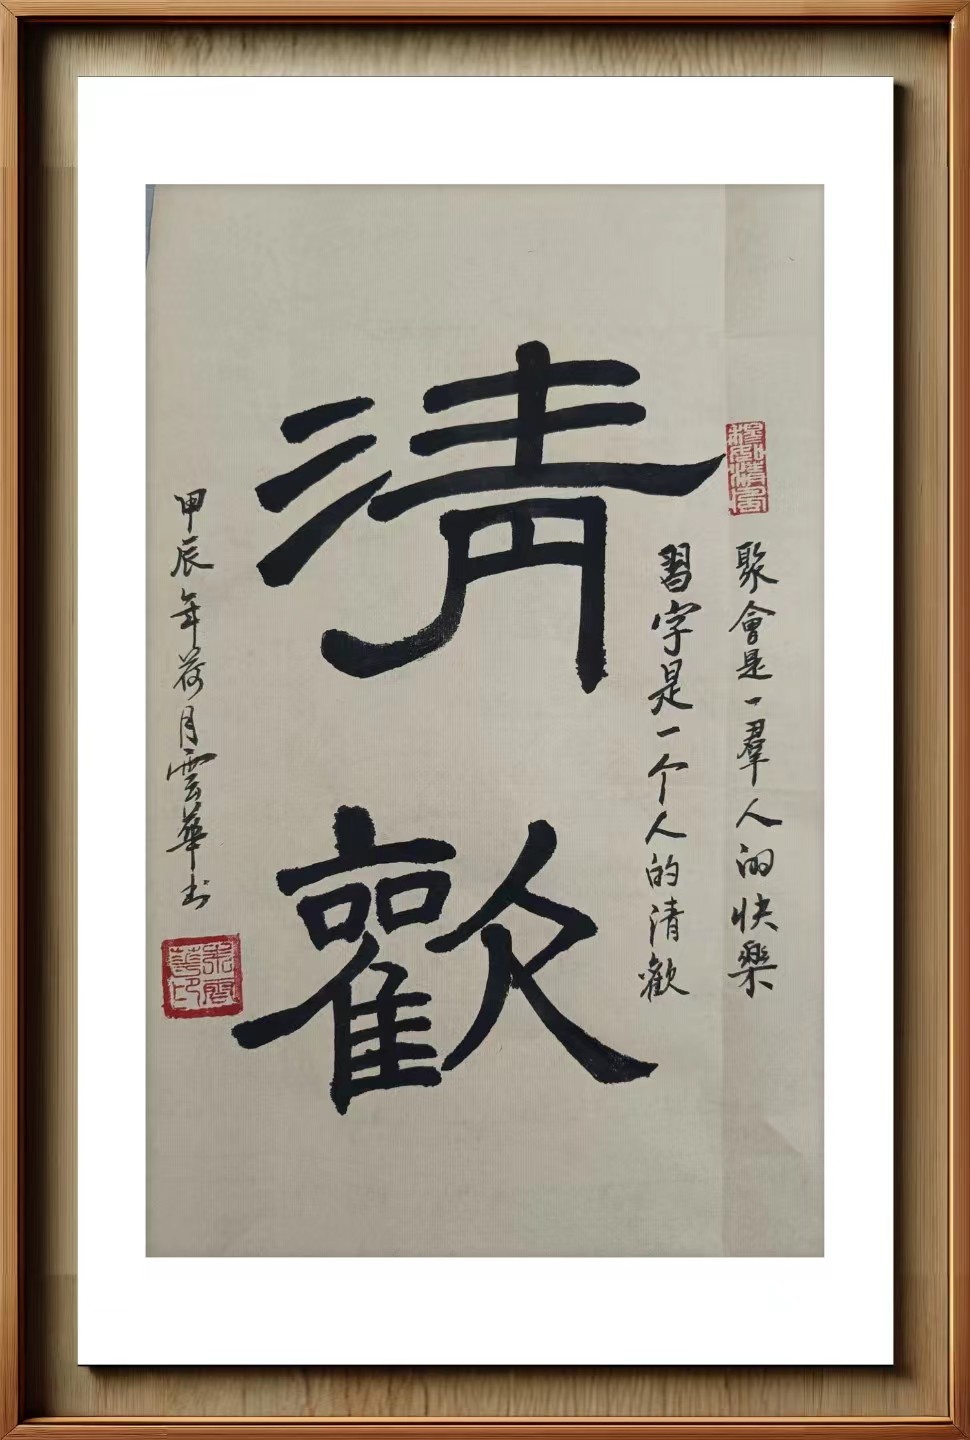 聚會是一羣人的快樂
習字是一个人的清歡
清歡
甲辰年荷月雲華书